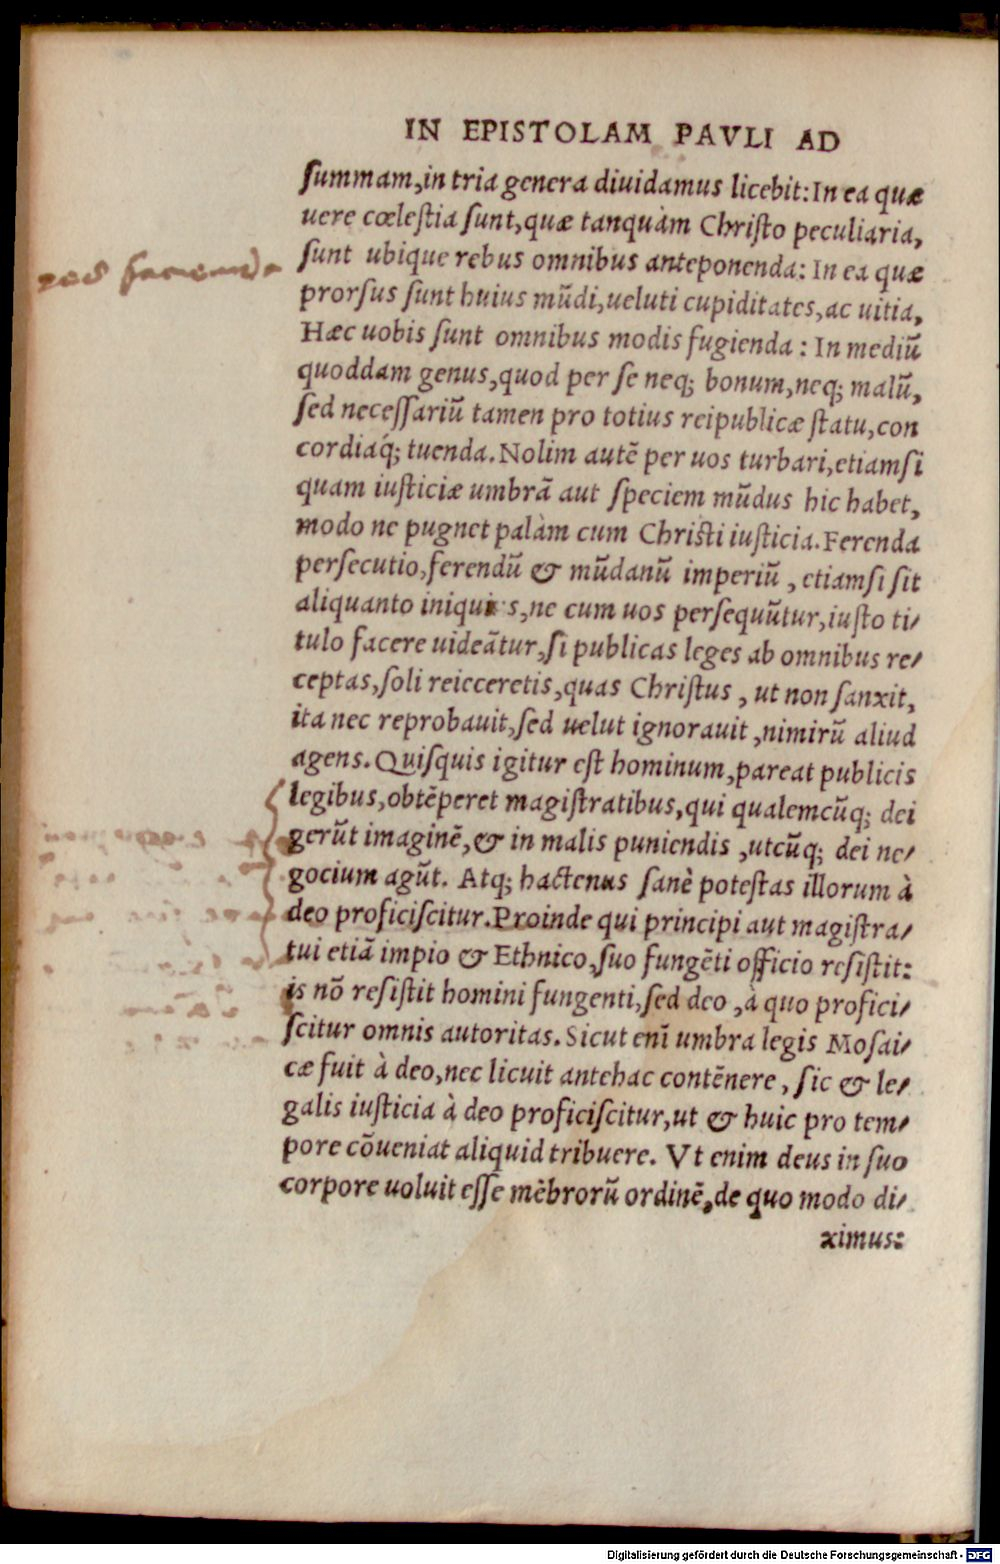 IN EPISTOLAM PAVLI AD
summam,in tria genera diuidamus licebit:In ea quæ
uere cœlestia sunt,quæ tanquàm Christo peculiaria,
sunt ubique rebus omnibus anteponenda: In ea quæ
prorsus sunt huius mũdi,ueluti cupiditates,ac uitia,
Hæc uobis sunt omnibus modis fugienda : In mediũ
quoddam genus,quod per se neq; bonum,neq; malũ,
sed necessariũ tamen pro totius reipublicæ statu,con
cordiáq; tuenda.Nolim autẽ per uos turbari,etiamsi
quam iusticiæ umbrã aut speciem mũdus hic habet,
modo ne pugnet palàm cum Christi iusticia.Ferenda
persecutio,ferendũ & mũdanũ imperiũ , etiamsi sit
aliquanto iniquius,ne cum uos persequũtur,iusto ti/
tulo facere uideãtur,si publicas leges ab omnibus re/
ceptas,soli reieceretis,quas Christus , ut non sanxit,
ita nec reprobauit,sed uelut ignorauit ,nimirũ aliud
agens.Quisquis igitur est hominum,pareat publicis
legibus,obtẽperet magistratibus,qui qualemcũq; dei
gerũt imaginẽ,& in malis puniendis ,utcũq; dei ne/
gocium agũt. Atq; hactenus sanè potestas illorum à
deo proficiscitur.Proinde qui principi aut magistra/
tui etiã impio & Ethnico,suo fungẽti officio resistit:
is nõ resistit homini fungenti,sed deo ,à quo profici/
scitur omnis autoritas.Sicut enĩ umbra legis Mosai/
cæ fuit à deo,nec licuit antehac contẽnere , sic & le/
galis iusticia à deo proficiscitur,ut & huic pro tem/
pore cõueniat aliquid tribuere. Vt enim deus in suo
corpore uoluit esse mẽbrorũ ordinẽ,de quo modo di/
ximus:
Digitalisierung gefördert durch die Deutsche Forschungsgemeinschaft - DFG